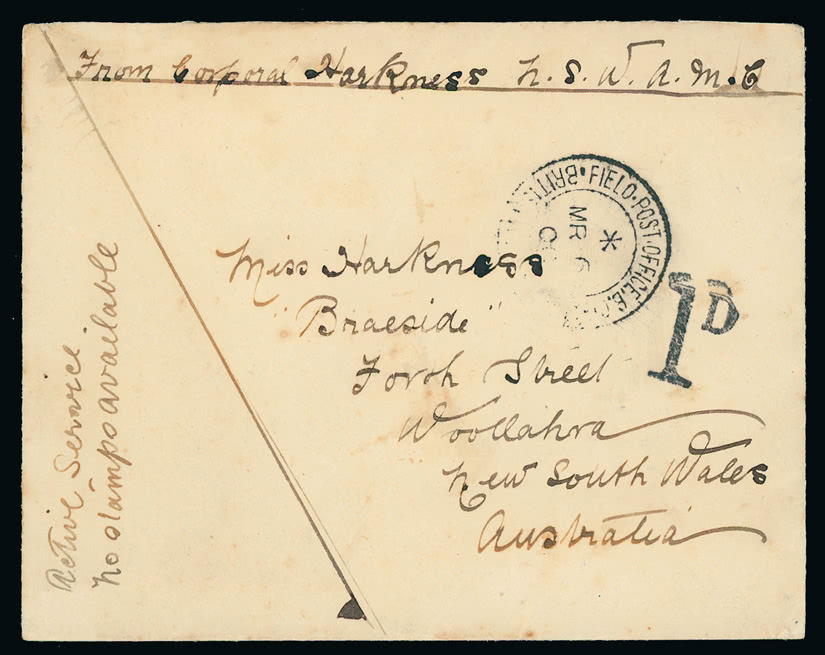 From Corporal Harkness N. S. W. A. M. C
BRITISH · FIELD · POST · OFFICE.
MR 6
1D
Miss Harkness
"Braeside"
Forth Street
Woollahra
New South Wales
Australia
Active Service
no stamps available